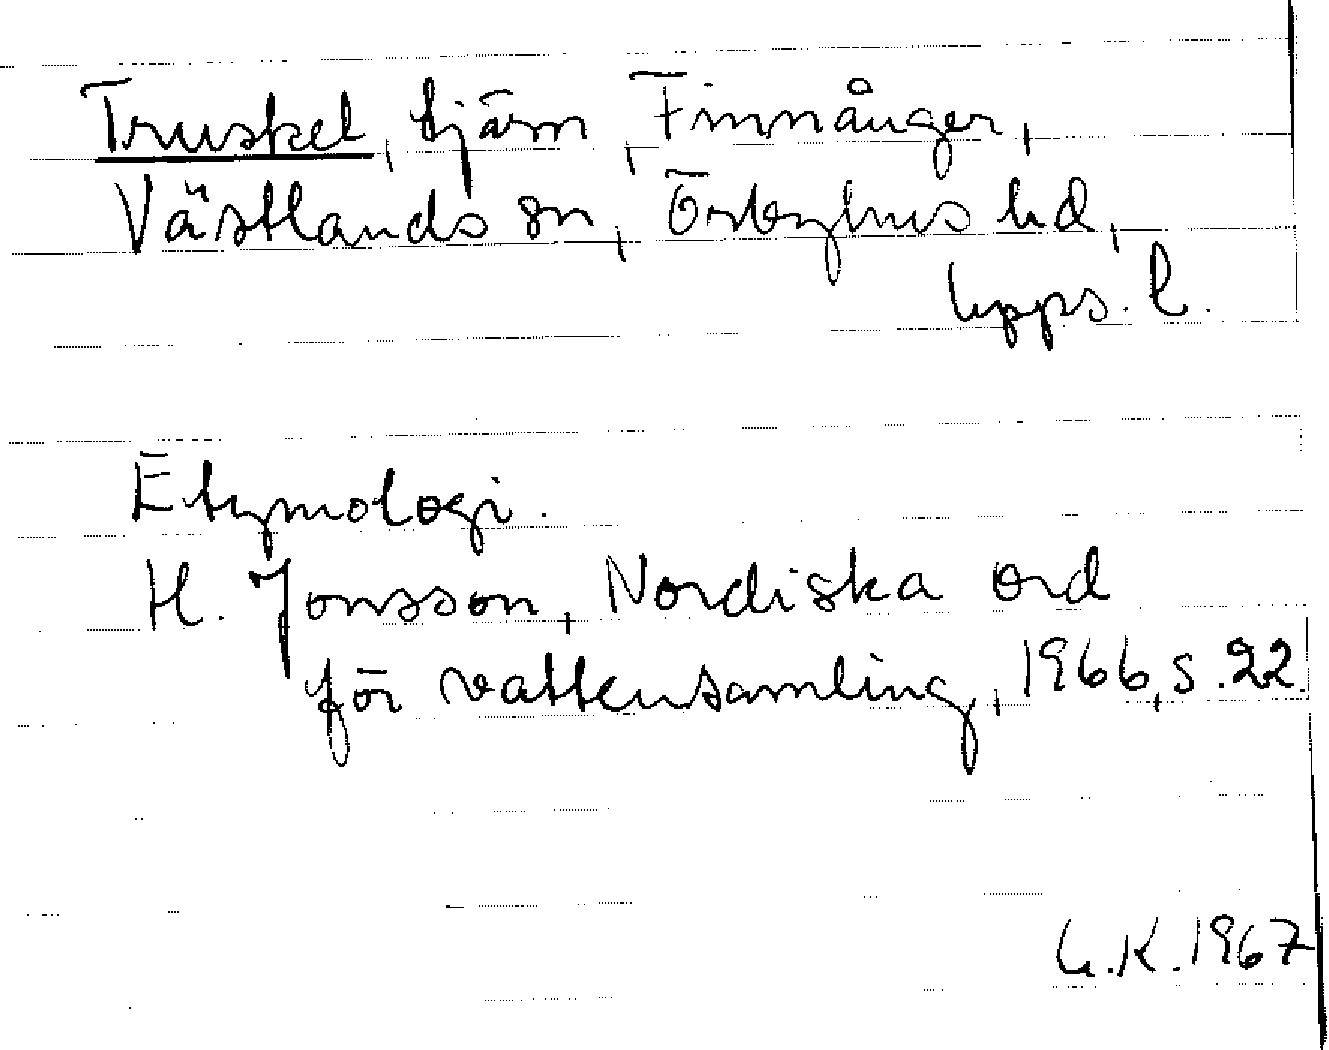 Truskel, tjärn, Finnånger,
Västlands sn, Örbyhus hd,
Upps. l.
Etymologi.
H. Jonsson, Nordiska ord
för vattensamling, 1966, s. 22.
G.K. 1967